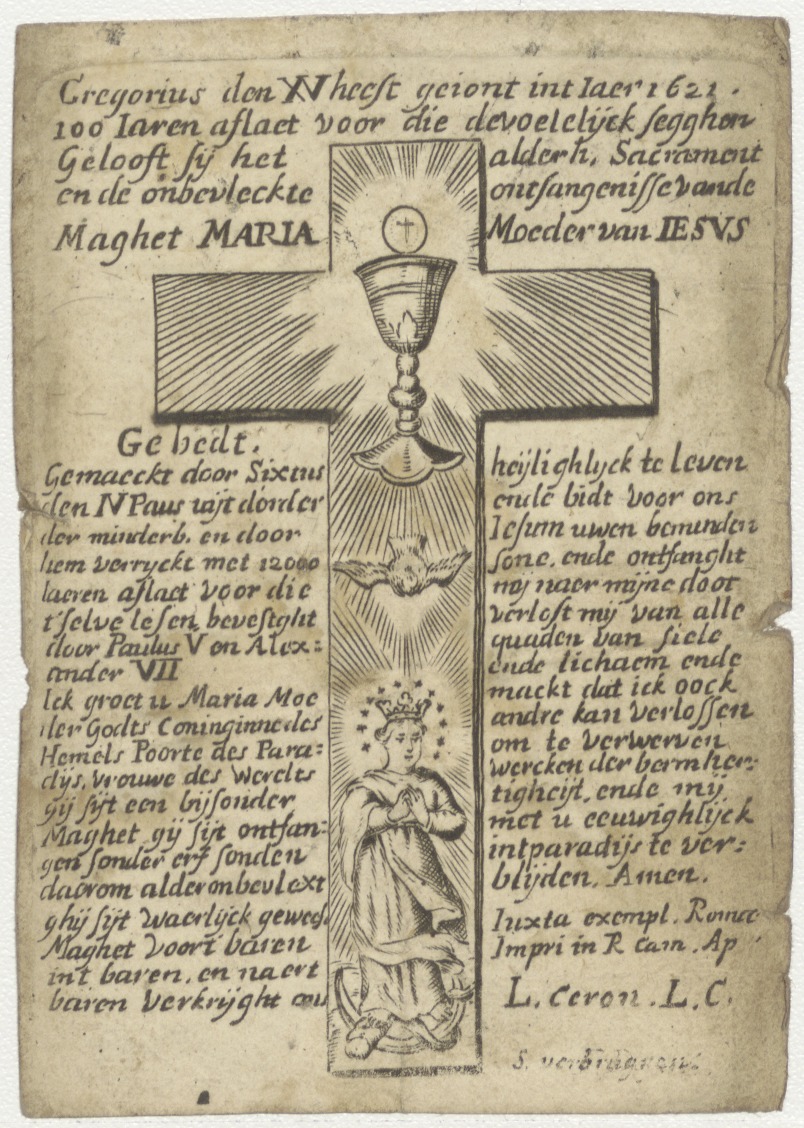 Gregorius den XV heeft geiont int Iaer 1621.
100 Iaren aflaet voor die devoetelijck segghen
Gelooft sij het alderh. Sacrament
en de onbevleckte ontfangenisse vande
Maghet MARIA Moeder van IESVS
Gebedt.
Gemaeckt door Sixtus
den IV Paus uijt dorder
der minderb. en door
hem verryckt met 12000
Iaeren aflaet voor die
t'selve lesen, bevestght
door Paulus V en Alex:
ander VII
Ick groet u Maria Moe
der Godts Coninginne des
Hemels Poorte des Para:
dijs, vrouwe des Werelts
gij sijt een bijsonder
Maghet gij sijt ontfan:
gen sonder erf sonden
daerom alderonbevlext
ghij sijt waerlijck geweest
Maghet voort baren
int baren, en naert
baren Verkrijght ons
heijlighlyck te leven
ende bidt voor ons
Iesum uwen beminden
sone, ende ontfanght
mij naer mijne doot
verlost mij van alle
quaden van siele
ende lichaem ende
mackt dat ick oock
andre kan verlossen
om te verwerven
wercken der bermher:
tigheijt, ende mij
met u eeuwighlijck
int paradijs te ver:
blijden. Amen.
Iuxta exempl. Romae
Impri in R Cam. Ap
L. Ceron. L. C.
S. verbruggen